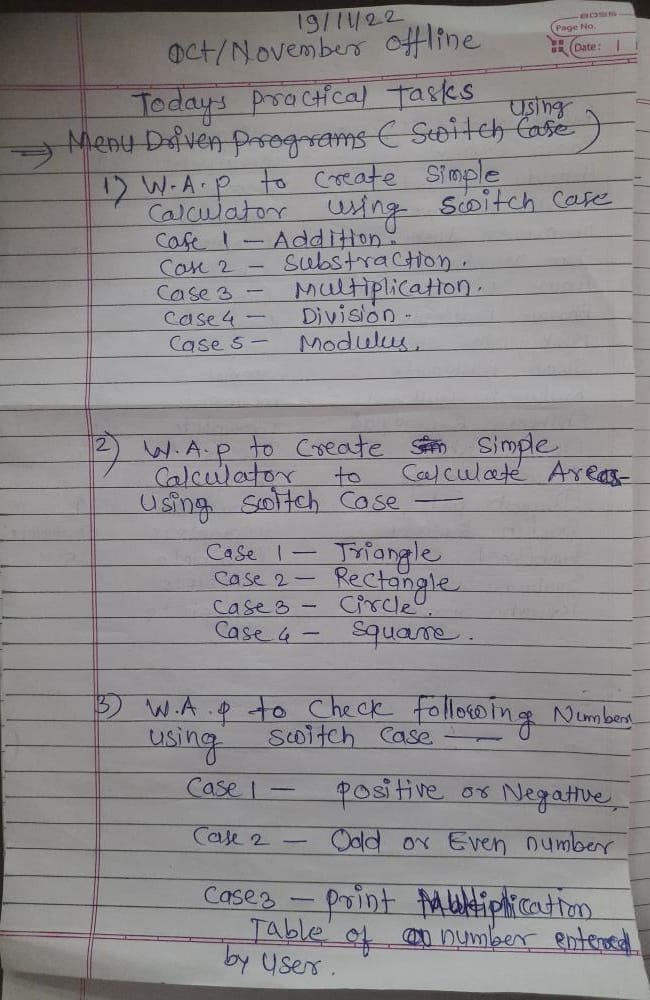 19/11/22
BOSS
Page No.
Date:
Oct/November offline
Todays practical Tasks
⇒ Menu Driven programs (Switch using Case)
1) W.A.P to Create Simple
Calculator using Switch Case
Case 1 – Addition.
Case 2 – Substraction.
Case 3 – Multiplication.
Case 4 – Division.
Case 5 – Modulus.
2) W.A.P to Create Simple
Calculator to Calculate Areas
using Switch Case —
Case 1 – Triangle
Case 2 – Rectangle
Case 3 – Circle.
Case 4 – Square.
3) W.A.P to Check following Numbers
using Switch Case —
Case 1 – positive or Negative,
Case 2 – Odd or Even number
Case 3 – print Multiplication
Table of number entered
by user.